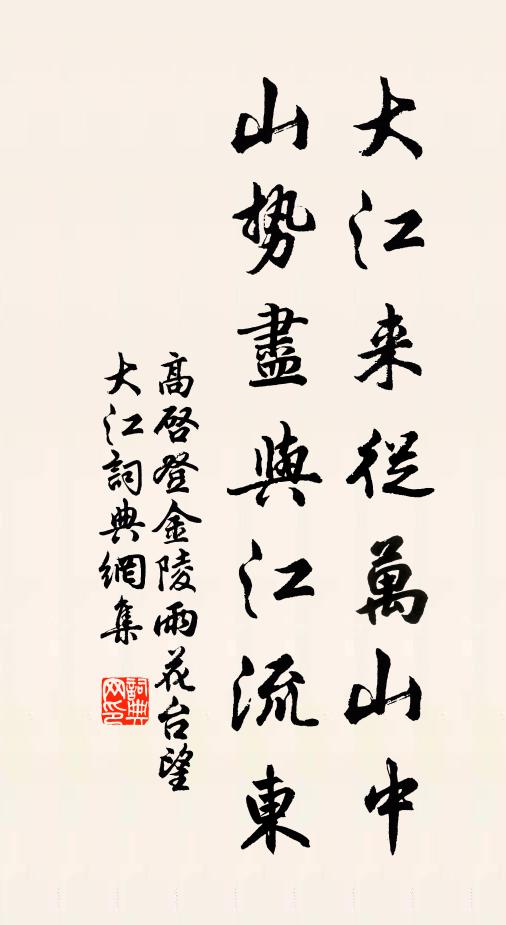 大江来從萬山中
山勢盡與江流東
高啓登金陵雨花台望
大江詞典網集
詞典
网印